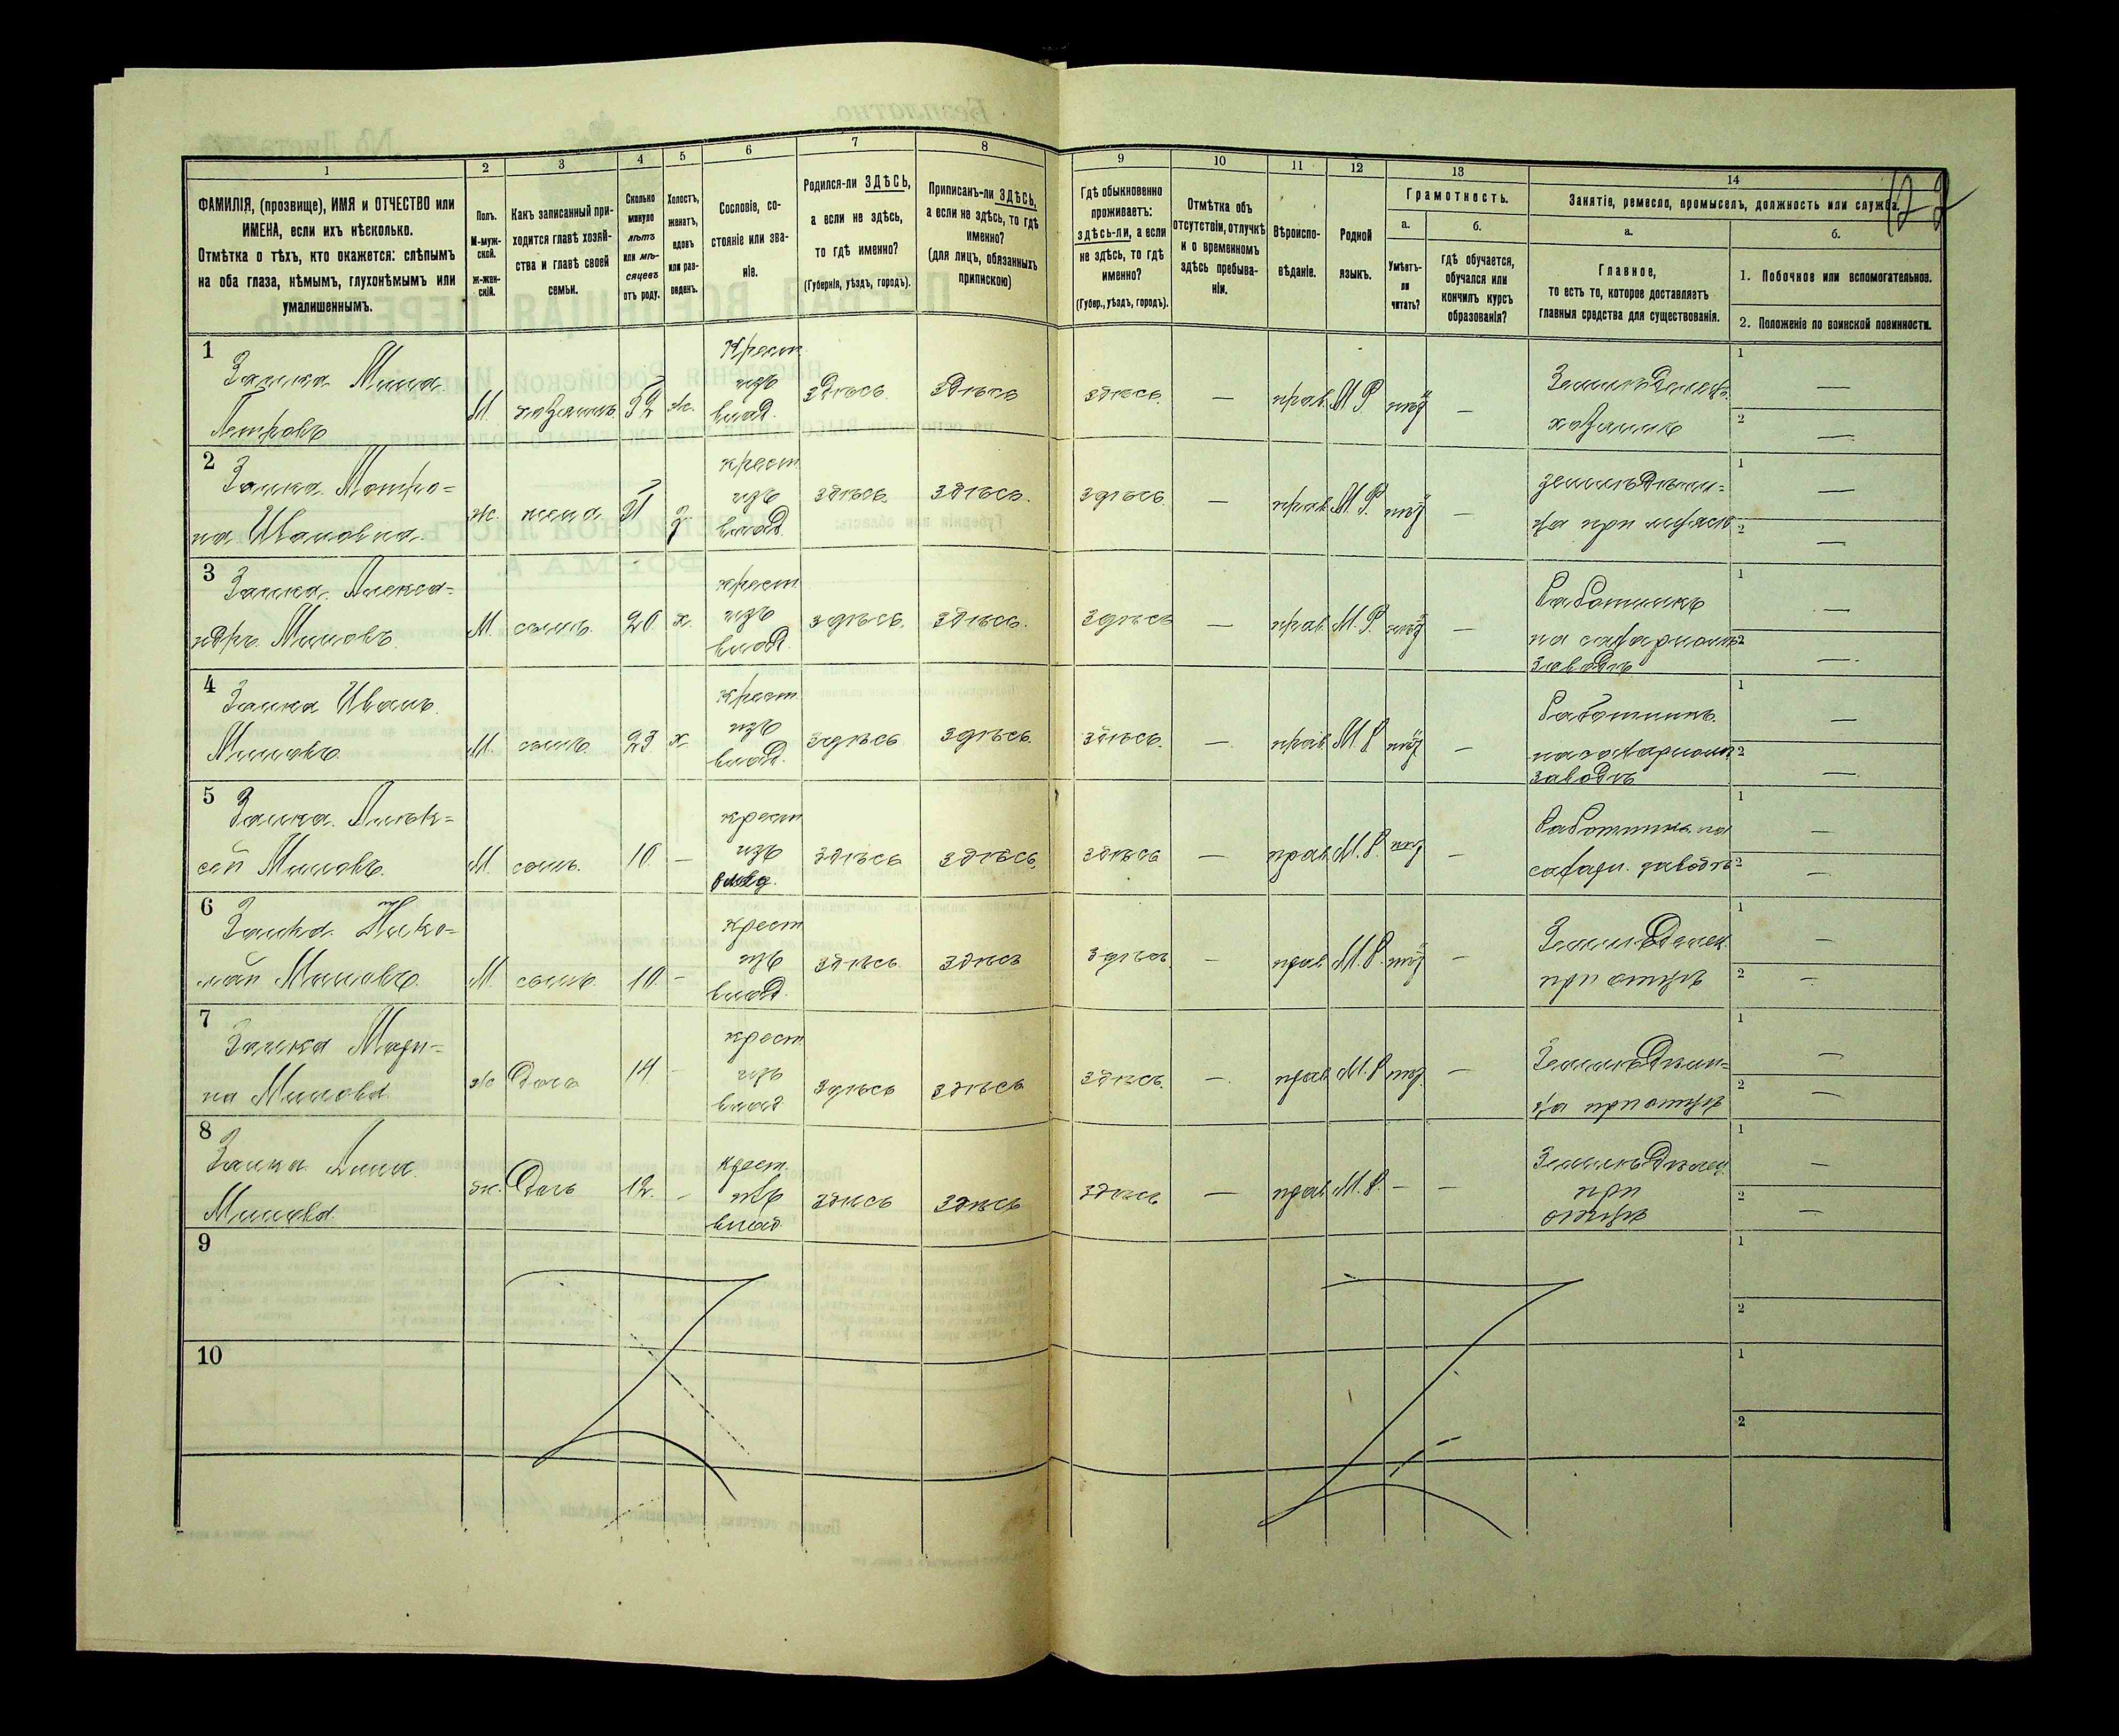 1 2 3 4 5 6 7 8 9 10 11 12 13 14
ФАМИЛІЯ, (прозвище), ИМЯ и ОТЧЕСТВО или
ИМЕНА, если ихъ нѣсколько.
Отмѣтка о тѣхъ, кто окажется: слѣпымъ
на оба глаза, нѣмымъ, глухонѣмымъ или
умалишеннымъ.
Полъ.
М-муж-
ской.
Ж-жен-
скій.
Какъ записанный при-
ходится главѣ хозяй-
ства и главѣ своей
семьи.
Сколько
минуло
лѣтъ
или мѣ-
сяцевъ
отъ роду.
Холостъ,
женатъ,
вдовъ
или раз-
веденъ.
Сословіе, со-
стояніе или зва-
ніе.
Родился-ли ЗДѢСЬ,
а если не здѣсь,
то гдѣ именно?
(Губернія, уѣздъ, городъ).
Приписанъ-ли ЗДѢСЬ,
а если не здѣсь, то гдѣ
именно?
(для лицъ, обязанныхъ
припискою)
Гдѣ обыкновенно
проживаетъ:
здѣсь-ли, а если
не здѣсь, то гдѣ
именно?
(Губер., уѣздъ, городъ).
Отмѣтка объ
отсутствіи, отлучкѣ
и о временномъ
здѣсь пребыва-
ніи.
Вѣроиспо-
вѣданіе.
Родной
языкъ.
Грамотность.
а.
Умѣетъ-
ли
читать?
б.
гдѣ обучается,
обучался или
кончилъ курсъ
образованія?
Занятіе, ремесло, промыселъ, должность или служба.
а.
Главное,
то есть то, которое доставляетъ
главныя средства для существованія.
б.
1. Побочное или вспомогательное.
2. Положеніе по воинской повинности.
1
Заика Мина
Петровъ
М. хозяинъ 52 ж. Крест. изъ влад. здѣсь здѣсь здѣсь — прав. М. Р. нѣт —
Земледѣлецъ
хозяинъ
1 —
2 —
2
Заика Матро-
на Ивановна
ж. жена 51 з. крест. изъ влад. здѣсь здѣсь здѣсь — прав. М. Р. нѣт —
земледѣли-
ца при мужѣ
1 —
2 —
3
Заика Алекса-
ндръ Миновъ
М. сынъ 20 х. крест. изъ влад. здѣсь здѣсь здѣсь — прав. М. Р. нѣт —
Работникъ
на сахарномъ
заводѣ
1 —
2 —
4
Заика Иванъ
Миновъ
М. сынъ 23 х. крест. изъ влад. здѣсь здѣсь здѣсь — прав. М. Р. нѣт —
Работникъ
на сахарномъ
заводѣ
1 —
2 —
5
Заика Алек-
сей Миновъ
М. сынъ 10. — крест. изъ влад. здѣсь здѣсь здѣсь — прав. М. Р. нѣт —
Работникъ на
сахарн. заводѣ
1 —
2 —
6
Заика Нико-
лай Миновъ
М. сынъ 10 — крест. изъ влад. здѣсь здѣсь здѣсь — прав. М. Р. нѣт —
Земледѣлец.
при отцѣ
1 —
2 —
7
Заика Мари-
на Минова
ж. Дочь 14 — крест. изъ влад. здѣсь здѣсь здѣсь — прав. М. Р. нѣт —
Земледѣли-
ца при отцѣ
1 —
2 —
8
Заика Анна
Минова
ж. Дочь 12. — крест. изъ влад. здѣсь здѣсь здѣсь — прав. М. Р. — —
Земледѣлец.
при
отцѣ
1 —
2 —
9
1
2
10
1
2